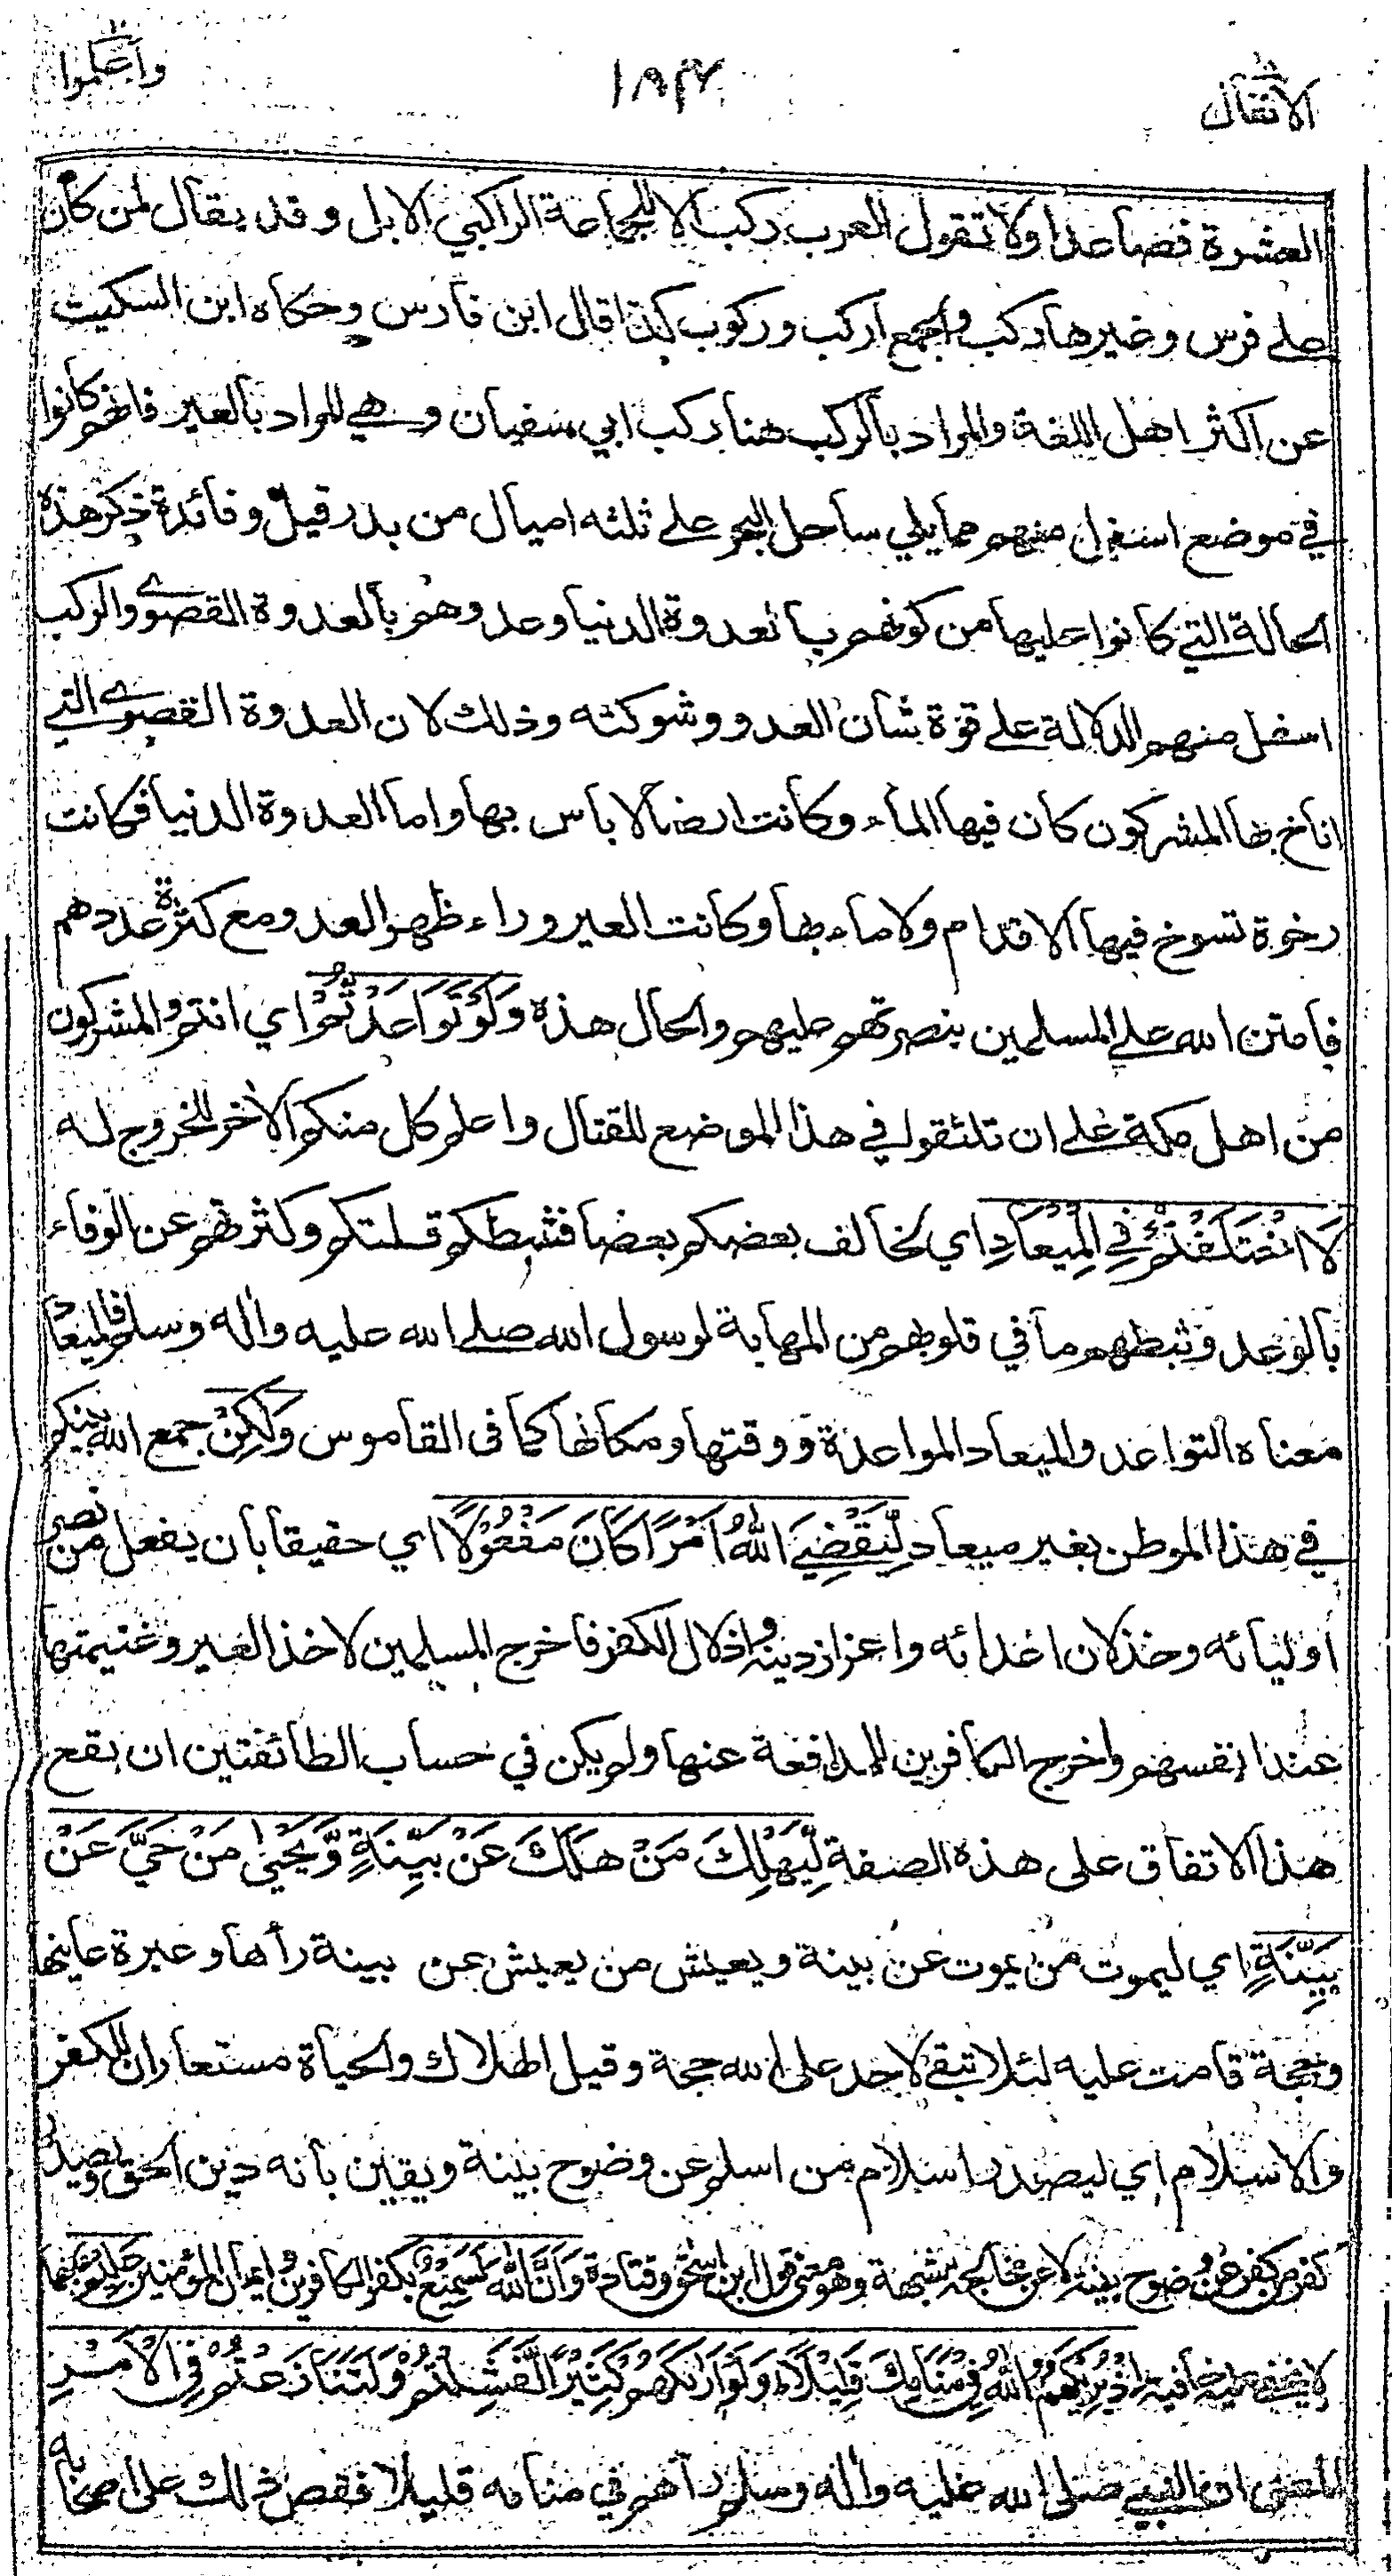 واعلموا
١٨٣٧
الانفال
العشرة فصاعدا ولا تقول العرب ركب الا للجماعة الراكبي الابل وقد يقال لمن كان
على فرس وغيرها ركب والجمع اركب وركوب كذا قال ابن فارس وحكاه ابن السكيت
عن اكثر اهل اللغة والمراد بالركب هنا ركب ابي سفيان وهي المراد بالعير فانهم كانوا
في موضع اسفل منهم مما يلي ساحل البحر على ثلثه اميال من بدر قيل وفائدة ذكر هذه
الحالة التي كانوا عليها من كونهم بالعدوة الدنيا وعدوهم بالعدوة القصوى والركب
اسفل منهم الدلالة على قوة شأن العدو وشوكته وذلك لان العدوة القصوى التي
اناخ بها المشركون كان فيها الماء وكانت ارضا لا باس بها واما العدوة الدنيا فكانت
رخوة تسوخ فيها الاقدام ولا ماء بها وكانت العير وراء ظهر العدو ومع كثرة عددهم
فامتن الله على المسلمين بنصرتهم عليهم والحال هذه وَلَوْ تَوَاعَدْتُّمْ اي انتم والمشركون
من اهل مكة على ان تلتقوا في هذا الموضع للقتال واعلم كل منكم الاخر للخروج له
لَاخْتَلَفْتُمْ فِي الْمِيْعَادِ اي لخالف بعضكم بعضا فثبطكم قلتكم وكثرتهم عن الوفاء
بالوعد وثبطهم ما في قلوبهم من المهابة لرسول الله صلى الله عليه واله وسلم فالميعاد
معناه التواعد والميعاد المواعدة ووقتها ومكانها كما فى القاموس وَلٰكِنْ جمع الله بينكم
في هذا الموطن بغير ميعاد لِّيَقْضِيَ اللّٰهُ اَمْرًا كَانَ مَفْعُوْلًا اي حقيقا بان يفعل من نصر
اوليائه وخذلان اعدائه واعزاز دينه واذلال الكفر فاخرج المسلمين لاخذ العير وغنيمتها
عند انفسهم واخرج الكافرين للمدافعة عنها ولم يكن في حساب الطائفتين ان يقع
هذا الاتفاق على هذه الصفة لِّيَهْلِكَ مَنْ هَلَكَ عَنْ بَيِّنَةٍ وَّيَحْيٰى مَنْ حَيَّ عَنْ
بَيِّنَةٍ اي ليموت من يموت عن بينة ويعيش من يعيش عن بينة رأها وعبرة عاينها
وحجة قامت عليه لئلا تبقى لاحد على الله حجة وقيل الهلاك والحياة مستعاران للكفر
والاسلام اي ليصدر اسلام من اسلم عن وضوح بينة ويقين بانه دين الحق ويصدر
كفر من كفر عن وضوح بينة لا عن مخالجة شبهة وهو معنى قول ابن اسحق وقتادة وَاَنَّ اللّٰهَ لَسَمِيْعٌ بكفر الكافرين وايمان المؤمنين عَلِيْمٌ بهما
لا يخفى عليه خافية اِذْ يُرِيْكَهُمُ اللّٰهُ فِيْ مَنَامِكَ قَلِيْلًا وَلَوْ اَرٰىكَهُمْ كَثِيْرًا لَّفَشِلْتُمْ وَلَتَنَازَعْتُمْ فِى الْاَمْرِ
المعنى ان النبي صلى الله عليه واله وسلم رأهم في منامه قليلا فقص ذلك على اصحابه